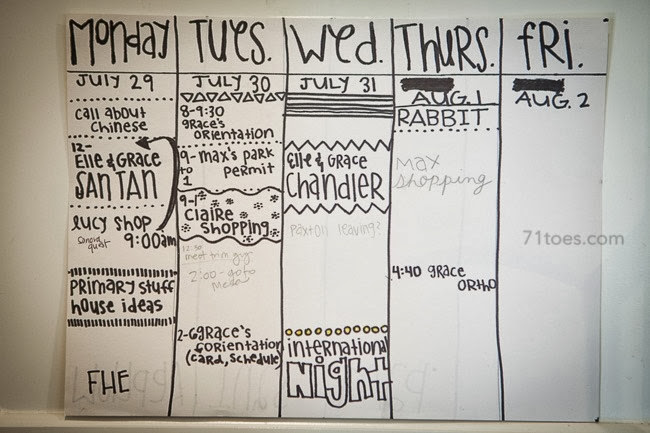 Monday
Tues.
Wed.
Thurs.
FRI.
July 29
call about
Chinese
12-
Elle & Grace
SAN TAN
lucy shop
9:00am
primary stuff
house ideas
FHE
July 30
8-9:30
grace's
orientation
9- max's park
to permit
1
9-1
Claire
shopping
12:30
2:00- go to
2-6 grace's
orientation
(card, schedule)
July 31
Elle & Grace
Chandler
paxton leaving?
international
night
Aug. 1
RABBIT
Max
shopping
4:40 grace
ortho
Aug. 2
71toes.com